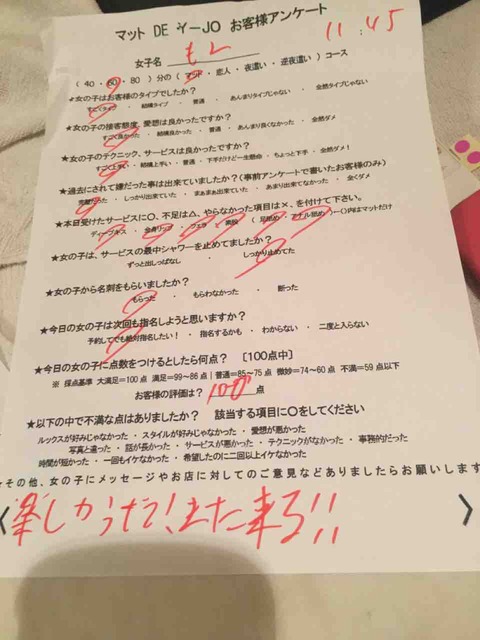 マット DE イーJO お客様アンケート
11:45
女子名 もし
(40・60・80)分の(マット・恋人・夜這い・逆夜這い)コース
★女の子はお客様のタイプでしたか?
すごくタイプ ・ 結構タイプ ・ 普通 ・ あんまりタイプじゃない ・ 全然タイプじゃない
★女の子の接客態度、愛想は良かったですか?
すごく良かった ・ 結構良かった ・ 普通 ・ あんまり良くなかった ・ 全然ダメ
★女の子のテクニック、サービスは良かったですか?
すごく上手い ・ 結構上手い ・ 普通 ・ 下手だけど一生懸命 ・ ちょっと下手 ・ 全然ダメ!
★過去にされて嫌だった事は出来ていましたか?(事前アンケートで書いたお客様のみ)
完璧だった ・ しっかり出来ていた ・ まぁまぁ出来ていた ・ あまり出来てなかった ・ 全くダメ
★本日受けたサービスに○、不足は△、やらなかった項目は×、を付けて下さい。
ディープキス ・ 全身リップ ・ フェラ ・ 素股 ( 足舐め ・ アナル舐め )←()内はマットだけ
★女の子は、サービスの最中シャワーを止めてましたか?
ずっと出しっぱなし ・ しっかり止めてた
★女の子から名刺をもらいましたか?
もらった ・ もらわなかった ・ 断った
★今日の女の子は次回も指名しようと思いますか?
予約してでも絶対指名したい! ・ 指名するかも ・ わからない ・ 二度と入らない
★今日の女の子に点数をつけるとしたら何点? [100点中]
※ 採点基準 大満足=100点 満足=99~86点|普通=85~75点 微妙=74~60点 不満=59点以下
お客様の評価は? 100 点
★以下の中で不満な点はありましたか? 該当する項目に○をしてください
ルックスが好みじゃなかった ・ スタイルが好みじゃなかった ・ 愛想が悪かった
写真と違った ・ 話が長かった ・ サービスが悪かった ・ テクニックがなかった ・ 事務的だった
時間が短かった ・ 一回もイケなかった ・ 希望したのに二回以上イケなかった
★その他、女の子にメッセージやお店に対してのご意見などありましたらお願いします
楽しかったで!また来る!!